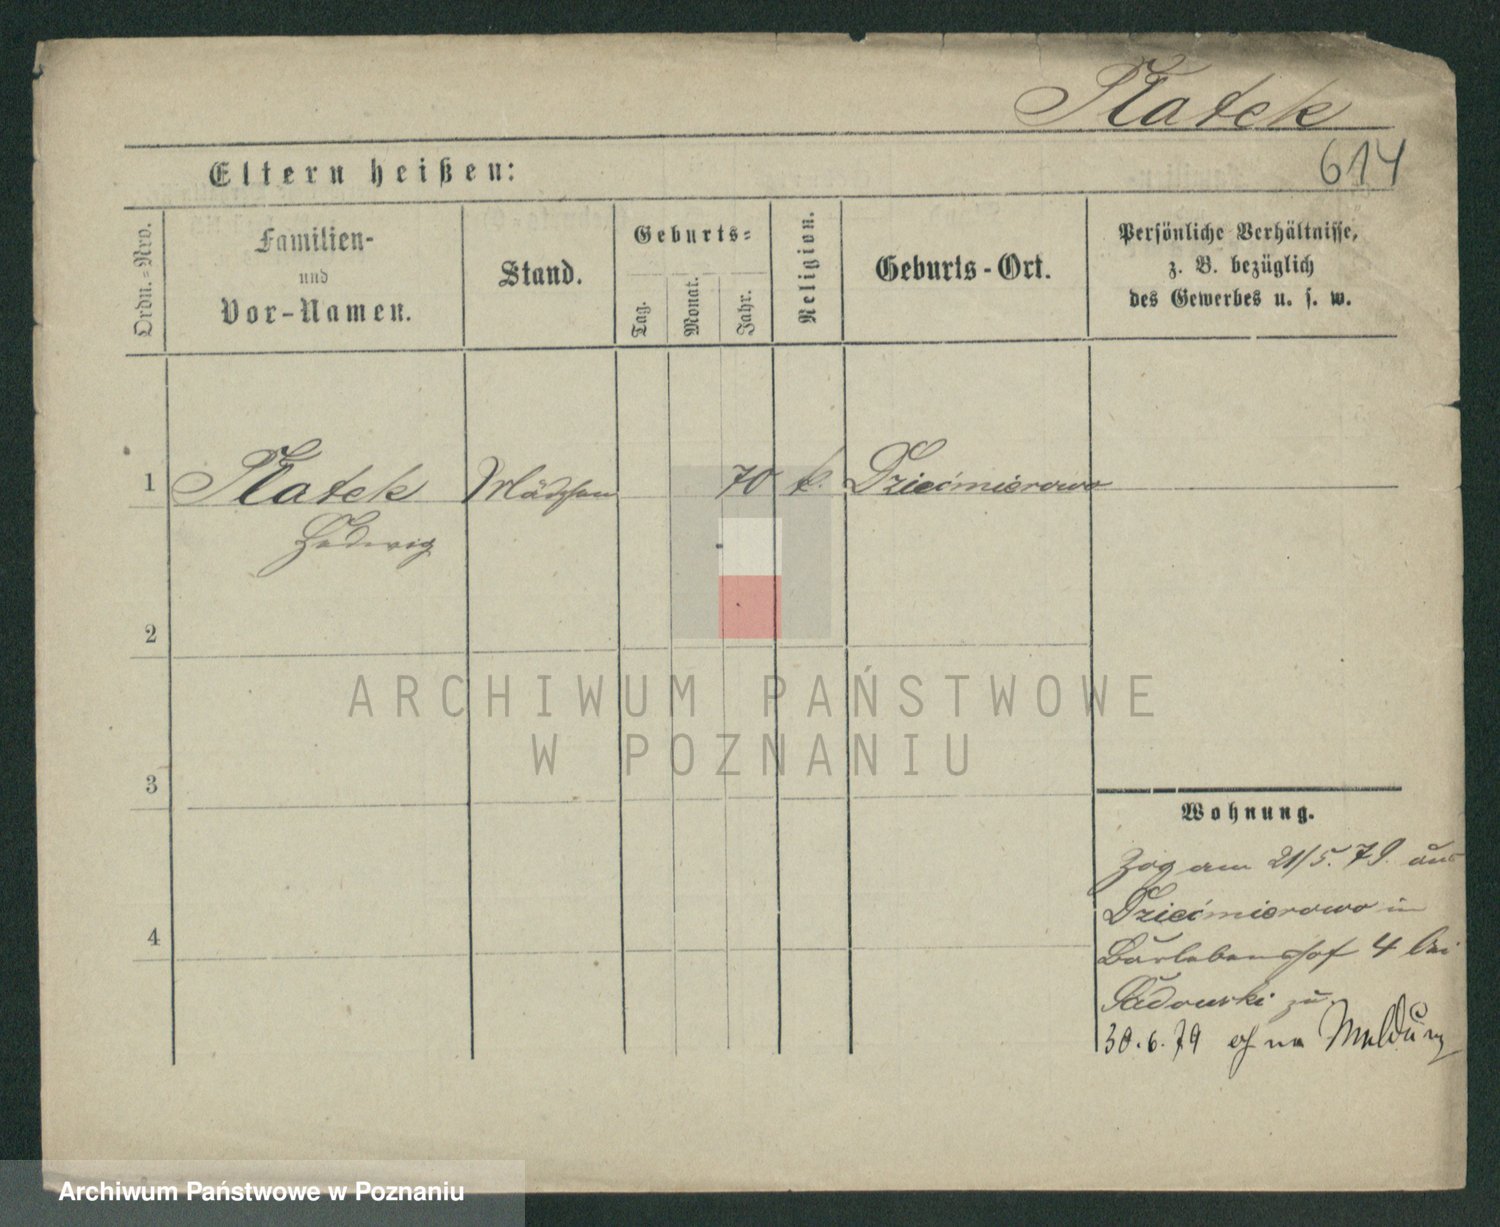 Płatek
614
Eltern heißen:
Ordn.-Nro.
Familien-
und
Vor-Namen.
Stand.
Geburts-
Tag.
Monat.
Jahr.
Religion.
Geburts-Ort.
Persönliche Verhältnisse,
z. B. bezüglich
des Gewerbes u. s. w.
1 Płatek Mädchen 70 k. Dziećmierowo
Hedwig
2
3
4
Wohnung.
Zog am 21/5. 79. aus
Dziećmierowo in
Barlebenshof 4 bei
Sadowski zu.
30.6.79 ohne Meldung
ARCHIWUM PAŃSTWOWE
W POZNANIU
Archiwum Państwowe w Poznaniu